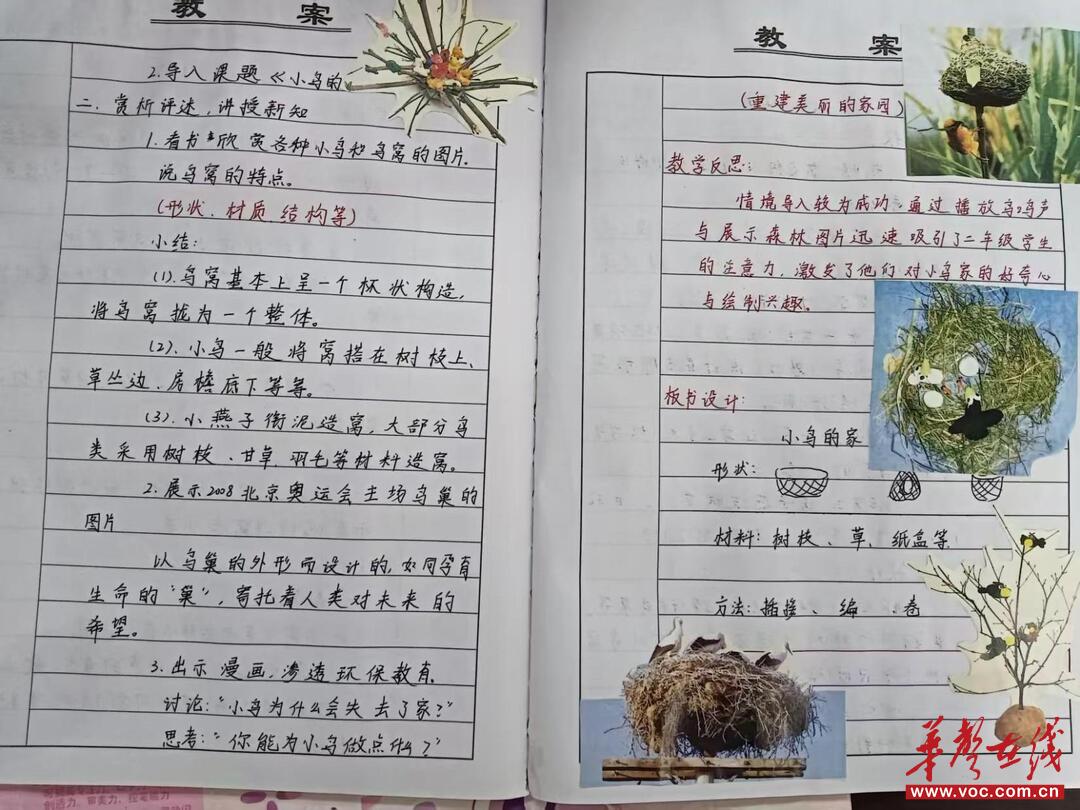 教 案
2.导入课题《小鸟的
二、赏析评述,讲授新知
1.看书欣赏各种小鸟和鸟窝的图片.
说鸟窝的特点。
(形状、材质 结构等)
小结:
(1).鸟窝基本上呈一个杯状构造,
将鸟窝拢为一个整体。
(2).小鸟一般将窝搭在树枝上、
草丛边、房檐底下等等。
(3).小燕子衔泥造窝,大部分鸟
类采用树枝、甘草、羽毛等材料造窝。
2.展示2008北京奥运会主场鸟巢的
图片
以鸟巢的外形而设计的,如同孕育
生命的“巢”,寄托着人类对未来的
希望。
3.出示漫画,渗透环保教育.
讨论:“小鸟为什么会失去了家?”
思考:“你能为小鸟做点什么?”
教 案
(重建美丽的家园)
教学反思:
情境导入较为成功 通过播放鸟鸣声
与展示森林图片迅速吸引了二年级学生
的注意力,激发了他们对小鸟家的好奇心
与绘制兴趣。
板书设计:
小鸟的家
形状:
材料:树枝、草、纸盒等
方法:插接、编、卷
华声在线
www.voc.com.cn